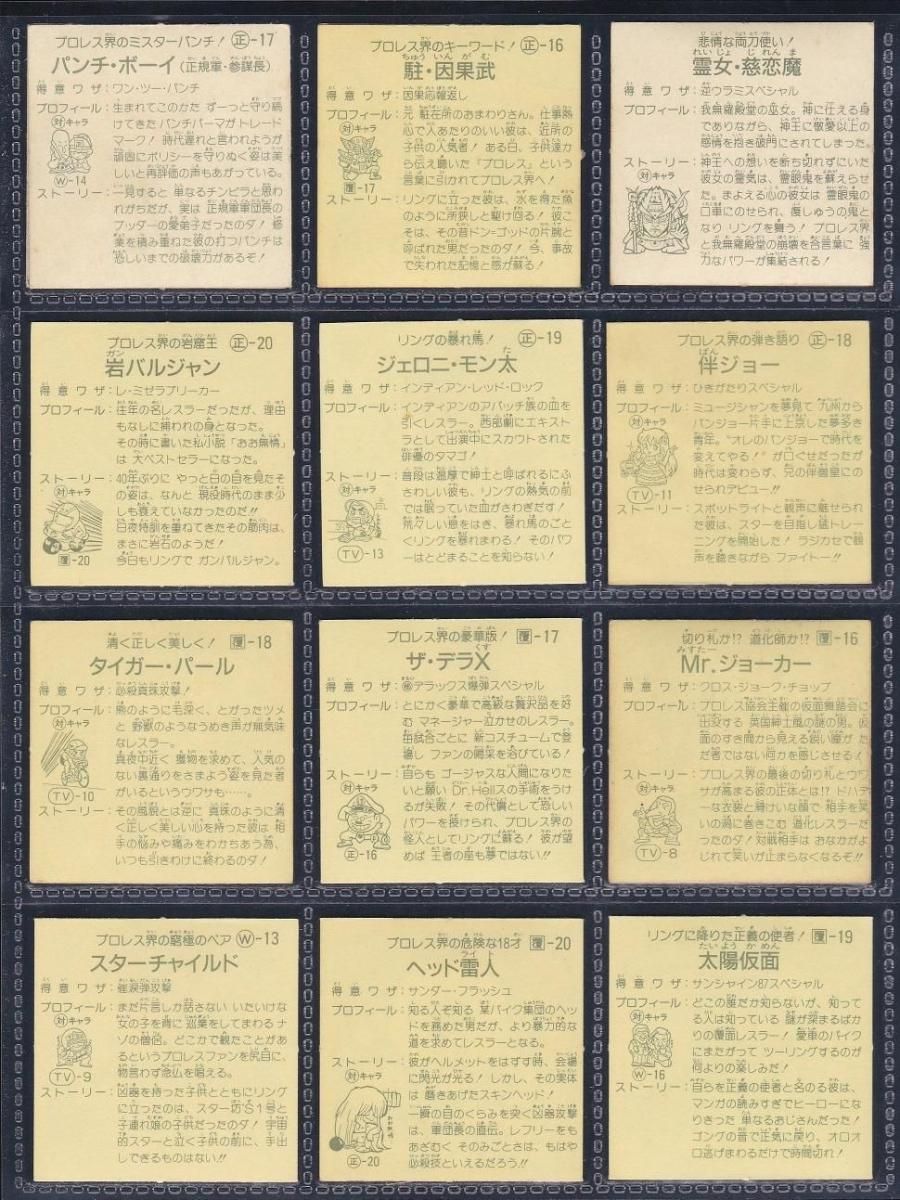 プロレス界のミスターパンチ! 正-17
パンチ・ボーイ(正規軍・参謀長)
得意ワザ:ワン・ツー・パンチ
プロフィール:生まれてこのかた ずーっと守り続
けてきた パンチパーマがトレード
マーク! 時代遅れと言われようが
頑固にポリシーを守りぬく姿は美
しいと再評価の声もあがっている。
対キャラ
W-14
ストーリー:一見すると 単なるチンピラと思わ
れがちだが、実は 正規軍軍団長の
ブッダーの愛弟子だったのダ! 修
業を積み重ねた彼の打つパンチは
恐しいまでの破壊力があるぞ!
プロレス界のキーワード! 正-16
駐・因果武
ちゅう いんがむ
得意ワザ:因果応報返し
プロフィール:元 駐在所のおまわりさん。仕事熱
心で人あたりのいい彼は、近所の
子供の人気者! ある日、子供達か
ら伝え聞いた『プロレス』という
言葉に引かれてプロレス界へ!
対キャラ
覆-17
ストーリー:リングに立った彼は、水を得た魚
のように所狭しと駆け回る! 彼こ
そは、その昔ドン=ゴッドの片腕と
呼ばれた男だったのダ! 今、事故
で失われた記憶と感が蘇る!
悲情な両刀使い!
れいじょ じれんま
霊女・慈恋魔
得意ワザ:逆ウラミスペシャル
プロフィール:我無羅殿堂の巫女。神に仕える身
でありながら、神王に敬愛以上の
感情を抱き破門にされてしまった。
ストーリー:神王への想いを断ち切れずにいた
対キャラ
彼女の霊気は、霊眼鬼を蘇えらせ
た。まよえる心の彼女は 霊眼鬼の
口車にのせられ、復しゅうの鬼と
なり リングを舞う! プロレス界
と我無羅殿堂の崩壊を合言葉に 強
力なパワーが集結される!
プロレス界の岩窟王 正-20
ガン
岩バルジャン
得意ワザ:レ・ミゼラブリーカー
プロフィール:往年の名レスラーだったが、理由
もなしに捕われの身となった。
その時に書いた私小説「おお無情」
は 大ベストセラーになった。
ストーリー:40年ぶりに やっと日の目を見たそ
対キャラ
の姿は、なんと 現役時代のまま少
しも衰えていなかったのだ!!
日夜特訓を重ねてきたその筋肉は、
まさに岩石のようだ!
今日もリングで ガンバルジャン。
覆-20
リングの暴れ馬! 正-19
ジェロニ・モン太
た
得意ワザ:インディアン・レッド・ロック
プロフィール:インディアンのアパッチ族の血を
引くレスラー。西部劇にエキスト
ラとして出演中にスカウトされた
俳優のタマゴ!
ストーリー:普段は温厚で紳士と呼ばれるにふ
対キャラ
さわしい彼も、リングの熱気の前
では眠っていた血がさわぎだす!
荒々しい息をはき、暴れ馬のごと
くリングを暴れまわる! そのパワ
ーはとどまることを知らない!
TV-13
プロレス界の弾き語り 正-18
ばん
伴ジョー
得意ワザ:ひきがたりスペシャル
プロフィール:ミュージシャンを夢見て 九州から
対キャラ
バンジョー片手に上京した夢多き
青年。“オレのバンジョーで時代を
変えてやる!”が口ぐせだったが
時代は変わらず、兄の伴番星にの
せられデビュー!!
TV-11
ストーリー:スポットライトと観声に魅せられ
た彼は、スターを目指し猛トレー
ニングを開始した! ラジカセで観
声を聴きながら ファイトー!!
清く正しく美しく! 覆-18
タイガー・パール
得意ワザ:必殺真珠攻撃!
プロフィール:熊のように毛深く、とがったツメ
対キャラ
と 野獣のようなうめき声が無気味
なレスラー。
真夜中近く 獲物を求めて、人気の
ない裏通りをさまよう姿を見た者
がいるというウワサも……。
TV-10
ストーリー:その風説とは逆に 真珠のように清
く正しく美しい心を持った彼は 相
手の悩みや痛みをわかちあう為、
いつも引きわけに終わるのダ!
プロレス界の豪華版! 覆-17
くす
ザ・デラX
得意ワザ:㊙デラックス爆弾スペシャル
プロフィール:とにかく豪華で高級な贅沢品を好
む マネージャー泣かせのレスラー。
毎試合ごとに 新コスチュームで登
場し ファンの喝采を浴びている!
ストーリー:自らも ゴージャスな人間になりた
対キャラ
いと願い Dr.Hellスの手術をうけ
るが失敗! その代償として恐しい
パワーを授けられ、プロレス界の
怪人としてリングに蘇る! 彼が望
めば 王者の座も夢ではない!!
正-16
切り札か!? 道化師か!? 覆-16
みすたー
Mr.ジョーカー
得意ワザ:クロス・ジョーク・チョップ
プロフィール:プロレス協会主催の仮面舞踏会に
出没する 英国紳士風の謎の男。仮
面のすき間から見える鋭い瞳が た
だ者ではない何力を感じさせる!
ストーリー:プロレス界の最後の切り札とウワ
対キャラ
サが高まる彼の正体とは!? ドハデ
な衣装と おどけた顔で 相手を笑
いの渦に巻きこむ 道化レスラーだ
ったのダ! 対戦相手は おなかがよ
じれて笑いが止まらなくなるぞ!!
TV-8
プロレス界の窮極のペア W-13
スターチャイルド
得意ワザ:催涙弾攻撃
プロフィール:まだ片言しか話さない いたいけな
対キャラ
女の子を背に 巡業をしてまわるナ
ゾの僧侶。どこかで観たことがあ
るというプロレスファンを尻目に、
物言わず念仏を唱える。
TV-9
ストーリー:凶器を持った子供とともにリング
に立ったのは、スター坊'S1号と
子連れ娘の子供だったのダ! 宇宙
的スターと泣く子供の前に、手出
しできるものはない!!
プロレス界の危険な18才 覆-20
ライト
ヘッド雷人
得意ワザ:サンダー・フラッシュ
プロフィール:知る人ぞ知る 某バイク集団のヘッ
ドを務めた男だが、より暴力的な
道を求めてレスラーとなる。
ストーリー:彼がヘルメットをはずす時、会場
対キャラ
に閃光が光る! しかし、その実体
は 磨きあげたスキンヘッド!
一瞬の目のくらみを突く凶器攻撃
は、軍団長の直伝。レフリーをも
あざむく そのみごとさは、もはや
必殺技といえるだろう!!
正-20
リングに降りた正義の使者! 覆-19
たいようかめん
太陽仮面
得意ワザ:サンシャイン87スペシャル
プロフィール:どこの誰だか知らないが、知って
対キャラ
る人は知っている 謎が深まるばか
りの覆面レスラー! 愛車のバイク
にまたがって ツーリングするのが
何よりの楽しみだ!
W-16
ストーリー:自らを正義の使者と名のる彼は、
マンガの読みすぎでヒーローにな
りきった 単なるおじさんだった!
ゴングの音で正気に戻り、オロオロ
逃げまわるだけで時間切れ!